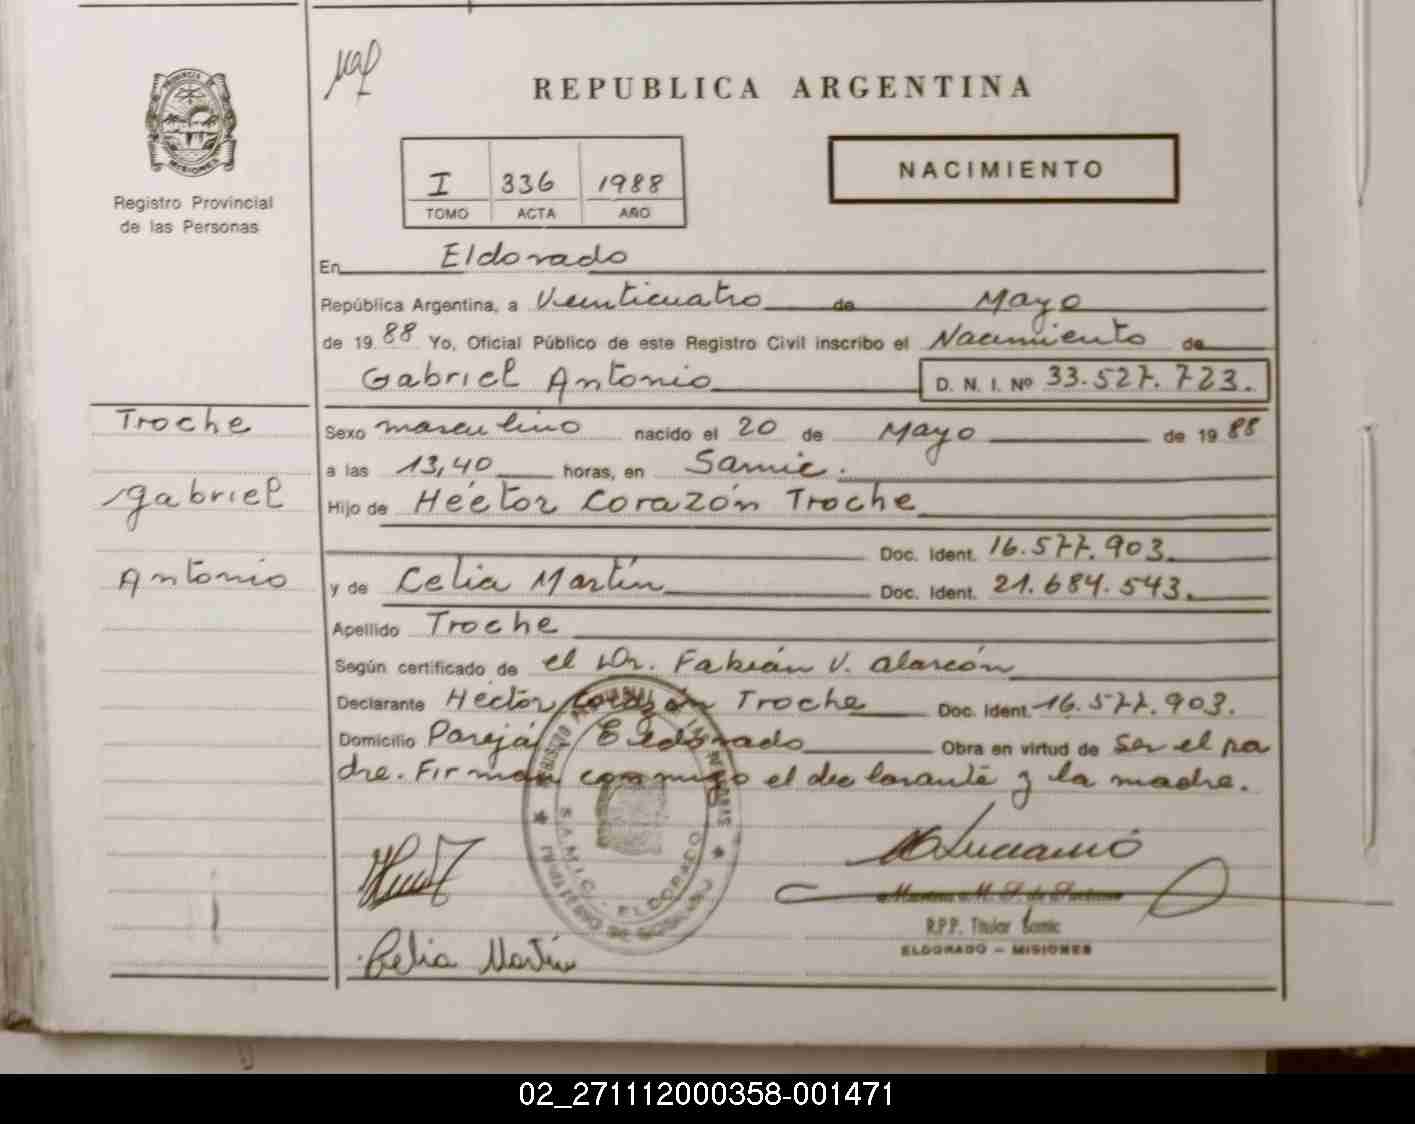 REPUBLICA ARGENTINA
PROVINCIA
MISIONES
Registro Provincial
de las Personas
I 336 1988
TOMO ACTA AÑO
NACIMIENTO
En Eldorado
República Argentina, a Veinticuatro de Mayo
de 1988 Yo, Oficial Público de este Registro Civil inscribo el Nacimiento de
Gabriel Antonio D. N. I. Nº 33.527.723.
Troche
Gabriel
Antonio
Sexo masculino nacido el 20 de Mayo de 1988
a las 13,40 horas, en Samic.
Hijo de Héctor Corazón Troche
Doc. Ident. 16.577.903.
y de Celia Martín Doc. Ident. 21.684.543.
Apellido Troche
Según certificado de el Dr. Fabián V. Alarcón
Declarante Héctor Corazón Troche Doc. Ident. 16.577.903.
Domicilio Parejá Eldorado Obra en virtud de ser el pa
dre. Firman conmigo el declarante y la madre.
S.A.M.I.C. - ELDORADO
MINISTERIO DE GOBIERNO
Celia Martín
R.P.P. Titular Samic
ELDORADO - MISIONES
02_271112000358-001471